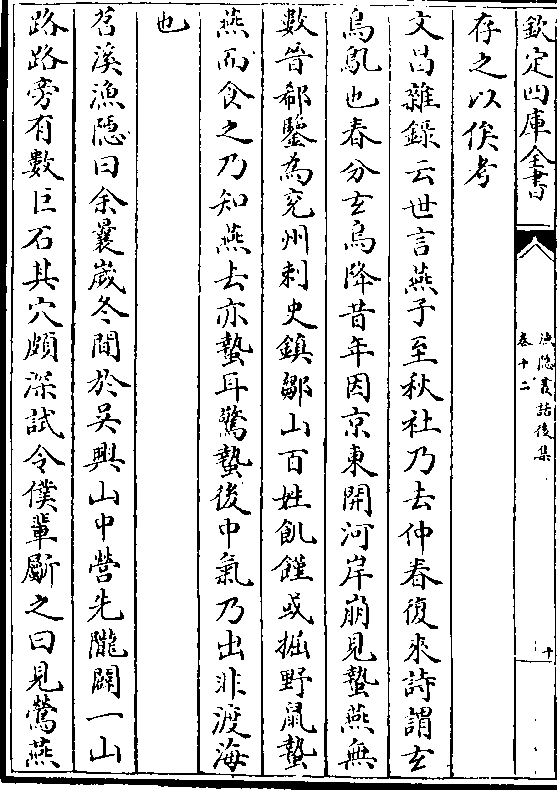 欽定四庫全書
漁隱叢話後集
卷十二
十
存之以俟考
文昌雜錄云世言燕子至秋社乃去仲春復來詩謂玄
鳥鳦也春分玄鳥降昔年因京東開河岸崩見蟄燕無
數晉郗鑒為兖州刺史鎮鄒山百姓飢饉或掘野鼠蟄
燕而食之乃知燕去亦蟄耳驚蟄後中氣乃出非渡海
也
苕溪漁隱曰余曩嵗冬間於吳興山中營先隴闢一山
路路旁有數巨石其穴頗深試令僕輩斸之曰見鶯燕